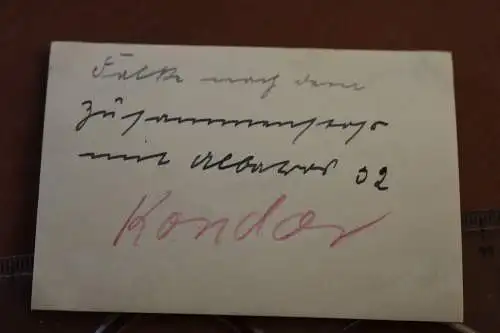 Falke nach dem
Zusammenstoß
mit Albatros 02
Kondor